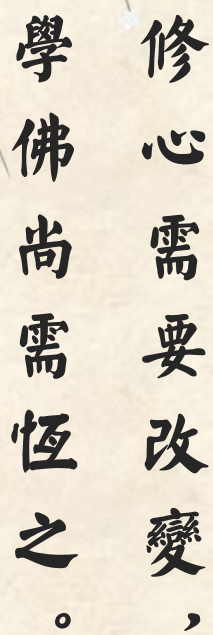 修心需要改變，
學佛尚需恆之。